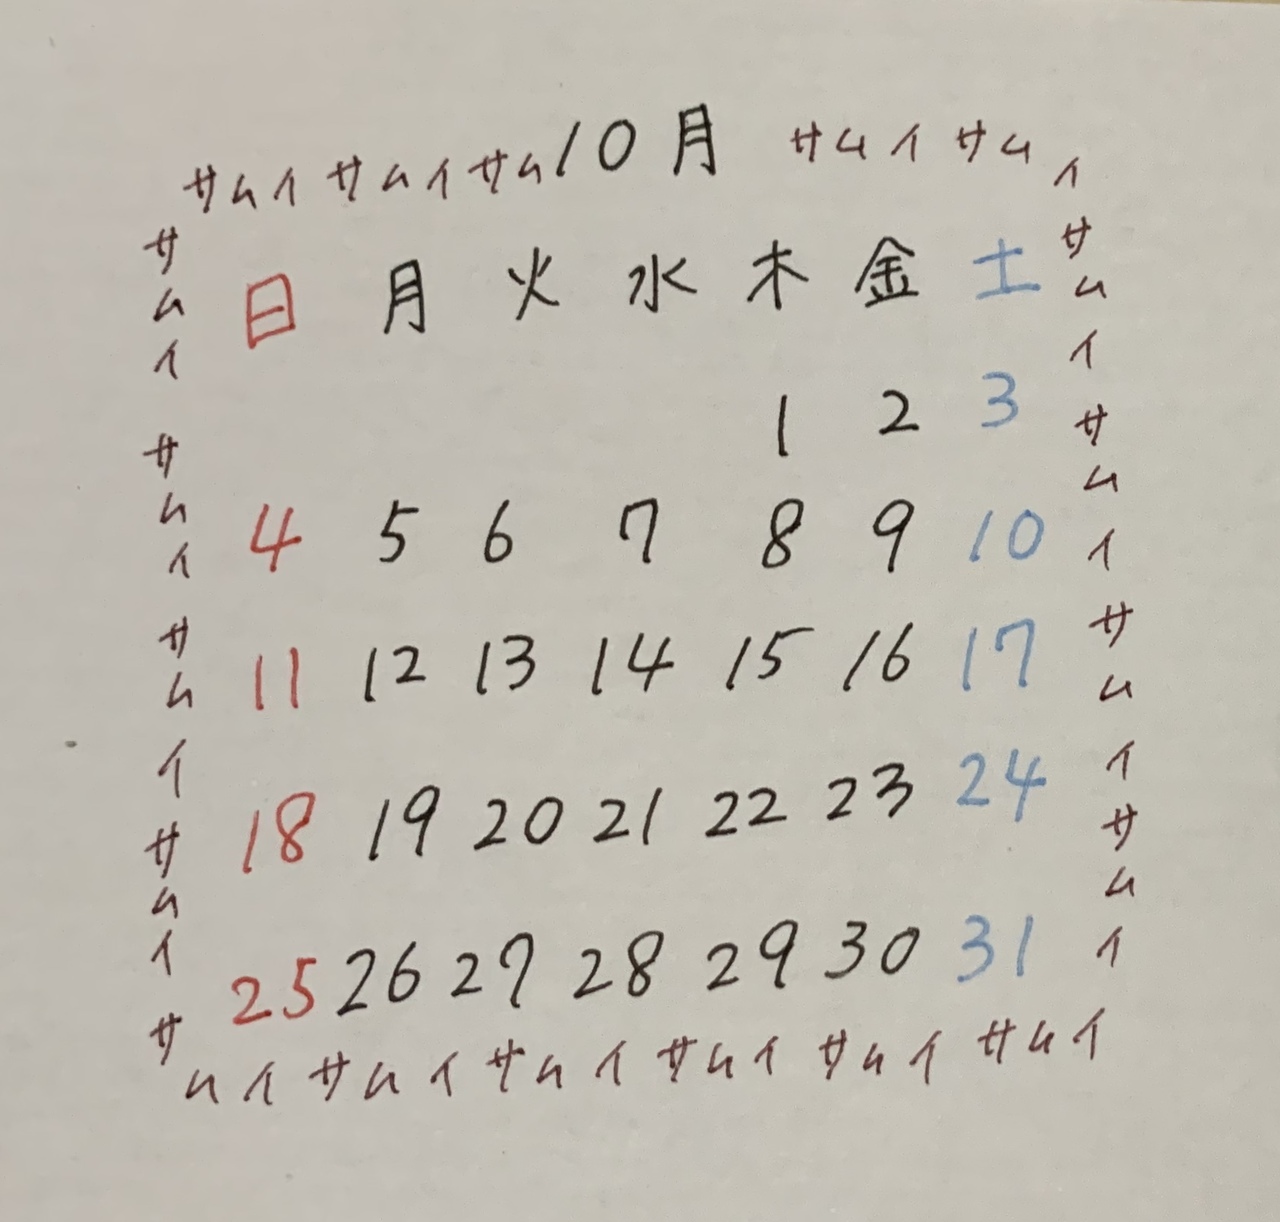 サムイサムイサム10月 サムイサムイ
日 月 火 水 木 金 土
1 2 3
4 5 6 7 8 9 10
11 12 13 14 15 16 17
18 19 20 21 22 23 24
25 26 27 28 29 30 31
サムイサムイサムイサムイサ
サムイサムイサムイサムイ
ムイサムイサムイサムイサムイサムイ